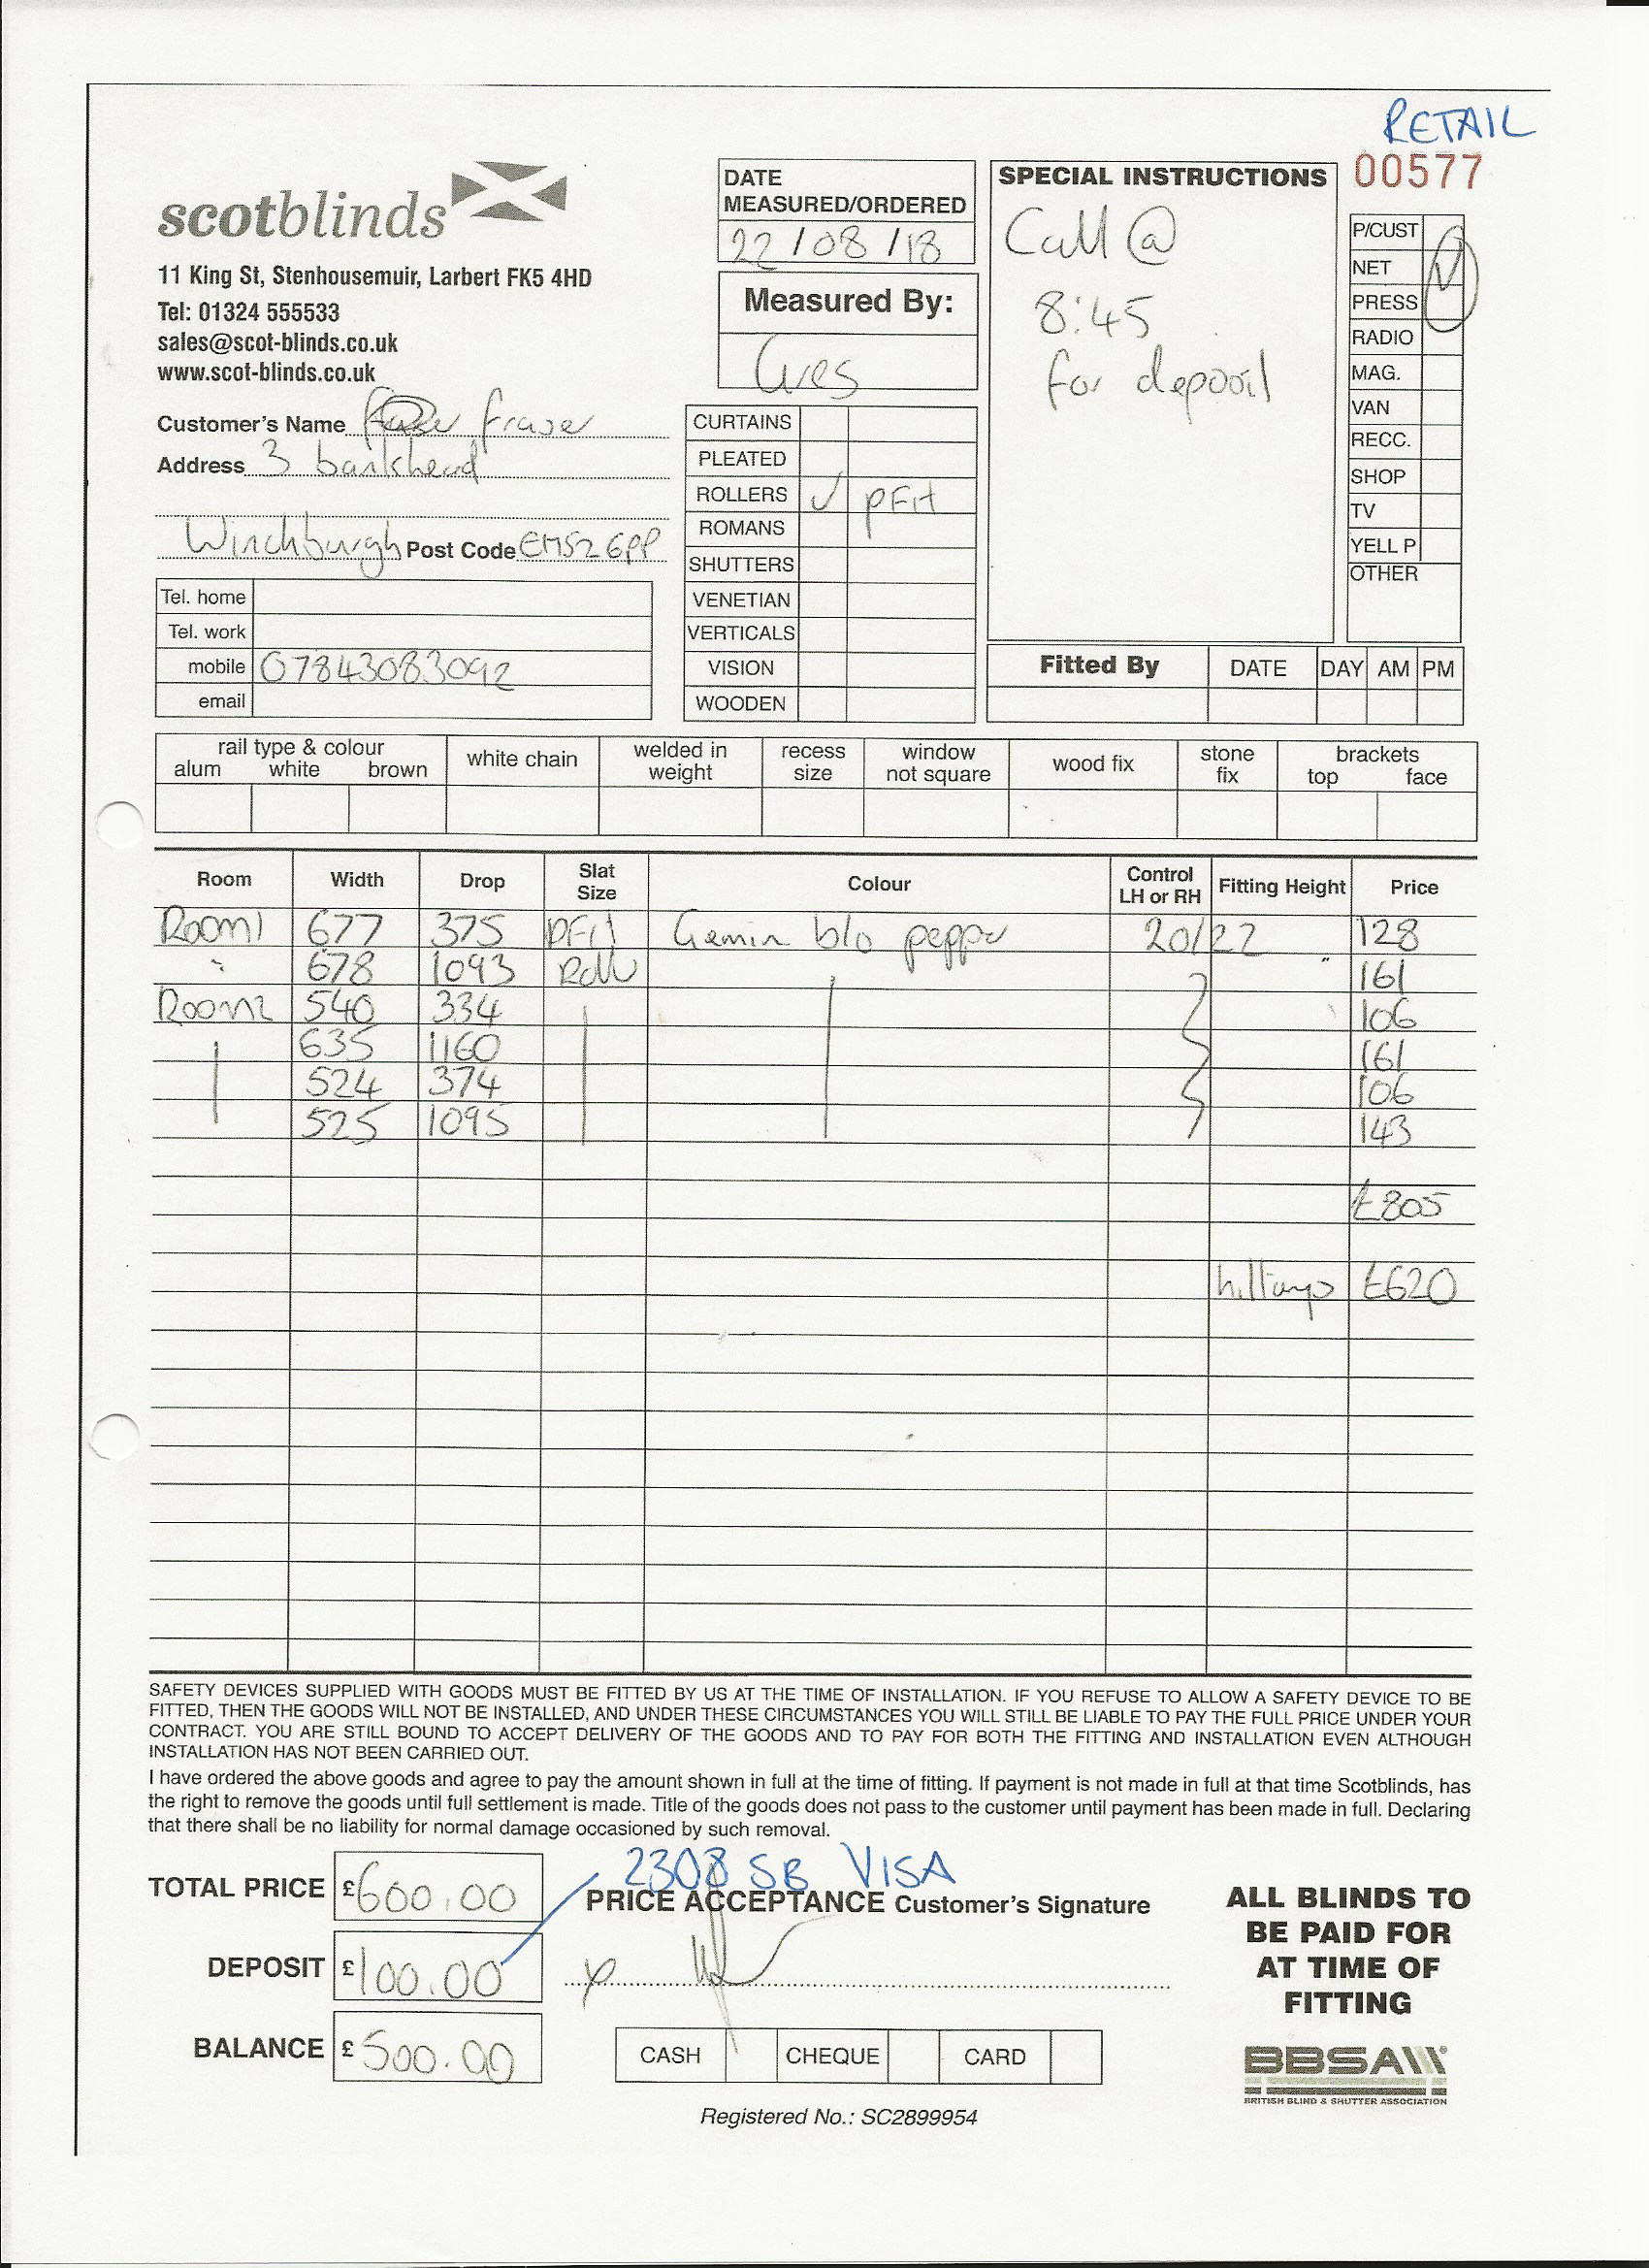 RETAIL
00577
scotblinds
11 King St, Stenhousemuir, Larbert FK5 4HD
Tel: 01324 555533
sales@scot-blinds.co.uk
www.scot-blinds.co.uk
Customer's Name fraser
Address 3 bankhead
Winchburgh Post Code EH52 6PP
Tel. home
Tel. work
mobile 07843083092
email
DATE
MEASURED/ORDERED
22/08/18
Measured By:
CURTAINS
PLEATED
ROLLERS ✓ PFit
ROMANS
SHUTTERS
VENETIAN
VERTICALS
VISION
WOODEN
SPECIAL INSTRUCTIONS
Call @
8:45
for deposit
P/CUST
NET ✓
PRESS
RADIO
MAG.
VAN
RECC.
SHOP
TV
YELL P
OTHER
Fitted By DATE DAY AM PM
rail type & colour
alum white brown
white chain
welded in
weight
recess
size
window
not square
wood fix
stone
fix
brackets
top face
Room Width Drop Slat Size Colour Control LH or RH Fitting Height Price
Room1 677 375 PFit Gemini b/o pepper 20/22 128
" 678 1093 Roller " 161
Room2 540 334 106
635 1160 161
524 374 106
525 1095 143
£805
£620
SAFETY DEVICES SUPPLIED WITH GOODS MUST BE FITTED BY US AT THE TIME OF INSTALLATION. IF YOU REFUSE TO ALLOW A SAFETY DEVICE TO BE
FITTED, THEN THE GOODS WILL NOT BE INSTALLED, AND UNDER THESE CIRCUMSTANCES YOU WILL STILL BE LIABLE TO PAY THE FULL PRICE UNDER YOUR
CONTRACT. YOU ARE STILL BOUND TO ACCEPT DELIVERY OF THE GOODS AND TO PAY FOR BOTH THE FITTING AND INSTALLATION EVEN ALTHOUGH
INSTALLATION HAS NOT BEEN CARRIED OUT.
I have ordered the above goods and agree to pay the amount shown in full at the time of fitting. If payment is not made in full at that time Scotblinds, has
the right to remove the goods until full settlement is made. Title of the goods does not pass to the customer until payment has been made in full. Declaring
that there shall be no liability for normal damage occasioned by such removal.
TOTAL PRICE £600.00
DEPOSIT £100.00
BALANCE £500.00
2308 SB VISA
PRICE ACCEPTANCE Customer's Signature
x
CASH CHEQUE CARD
ALL BLINDS TO
BE PAID FOR
AT TIME OF
FITTING
BBSA
BRITISH BLIND & SHUTTER ASSOCIATION
Registered No.: SC2899954